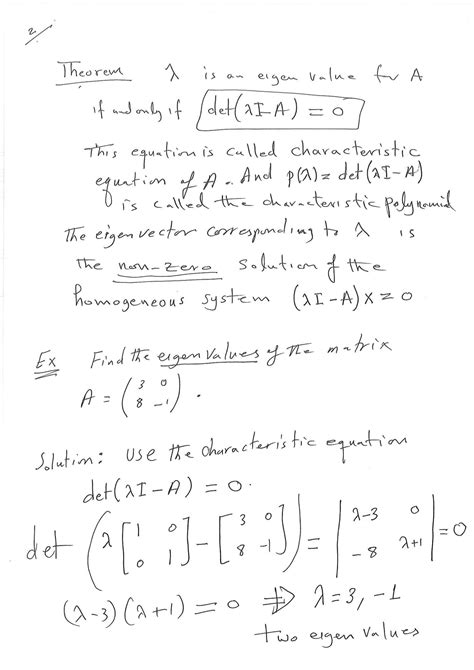 2
Theorem λ is an eigen value for A
if and only if det(λI-A) = 0
This equation is called characteristic
equation of A. And p(λ) = det(λI-A)
is called the characteristic polynomial
The eigenvector corresponding to λ is
the non-zero solution of the
homogeneous system (λI-A)x = 0
Ex Find the eigen values of the matrix
A = (3 0; 8 -1).
Solution: Use the characteristic equation
det(λI-A) = 0.
det (λ [1 0; 0 1] - [3 0; 8 -1]) = |λ-3 0; -8 λ+1| = 0
(λ-3)(λ+1) = 0 ⇒ λ = 3, -1
two eigen values